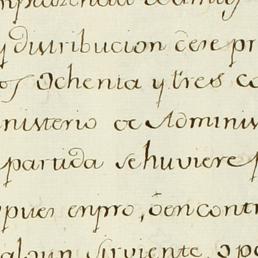 y distribucion dese pr
os Ochenta y tres co
nisterio de Adminis
partida sehuviere p
pues enpro, óen contr
algun sirviente, o po